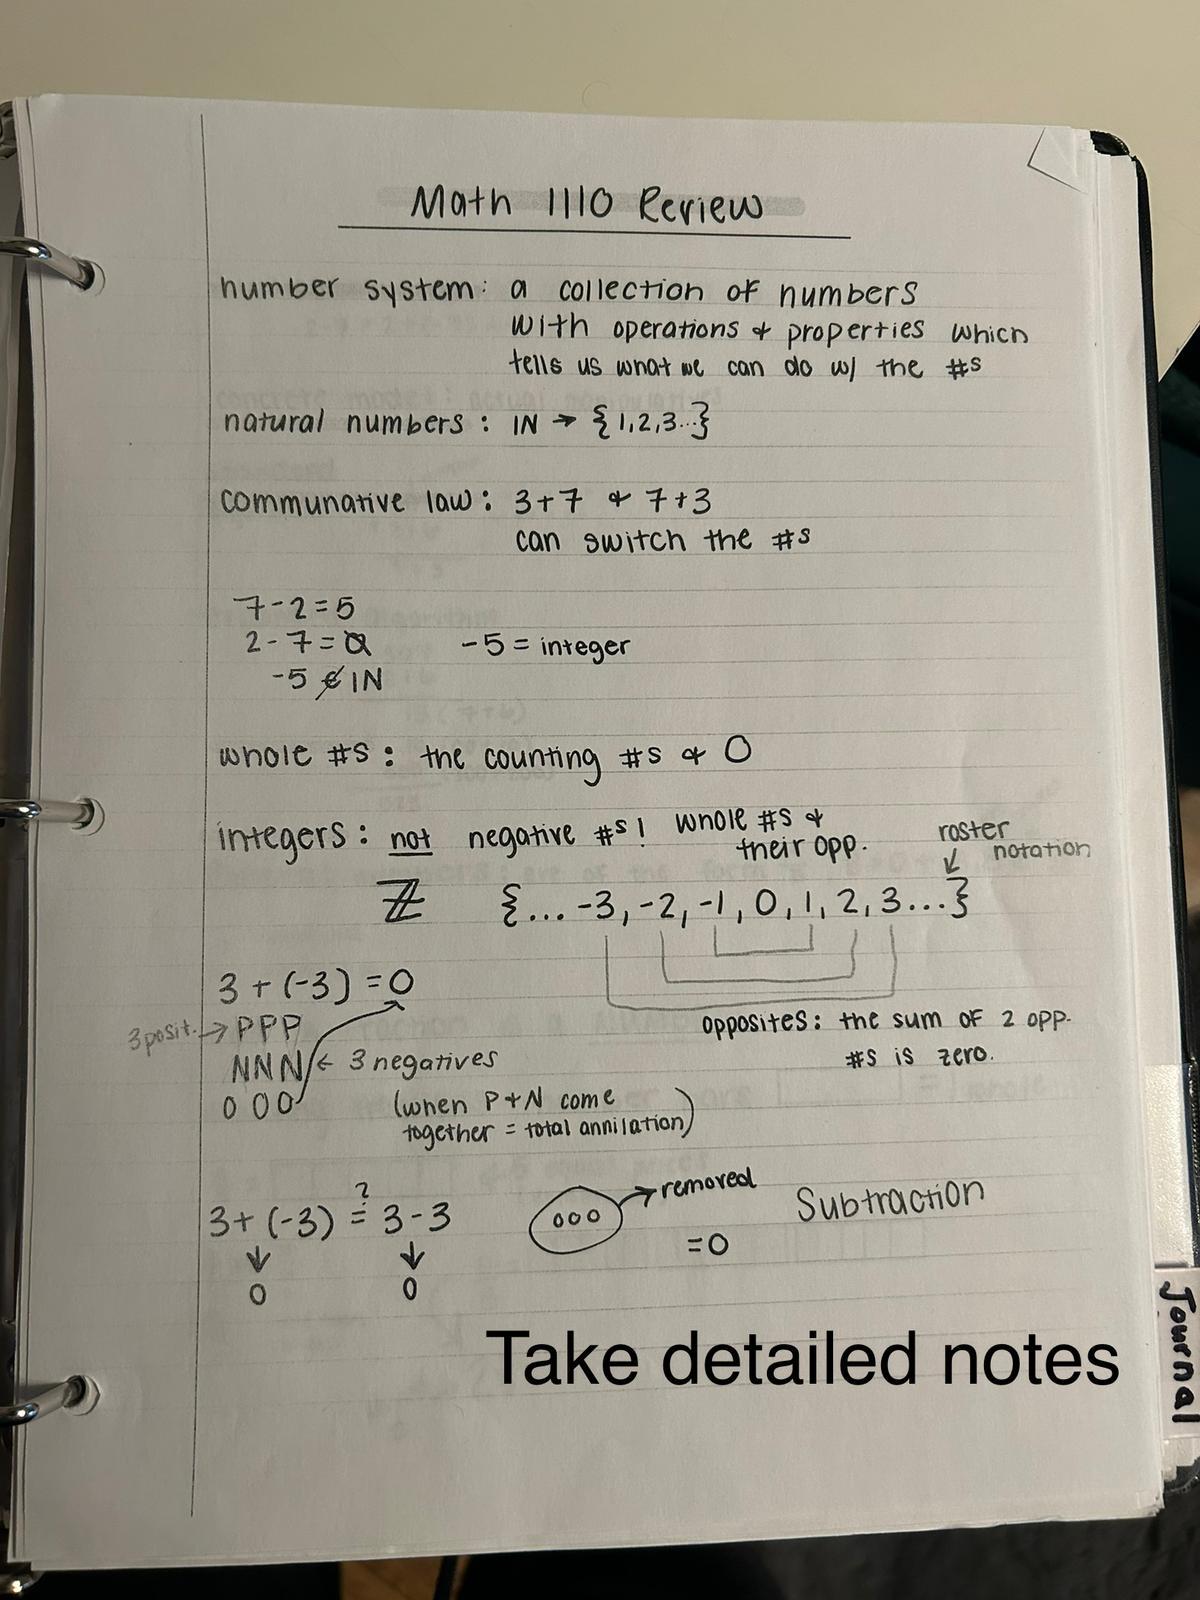 Math 1110 Review
number system: a collection of numbers
with operations & properties which
tells us what we can do w/ the #s
natural numbers: ℕ → {1,2,3...}
communative law: 3+7 & 7+3
can switch the #s
7-2=5
2-7=
-5 = integer
-5 ∉ ℕ
whole #s: the counting #s & 0
integers: not negative #s! whole #s &
their opp.
roster
notation
ℤ {... -3, -2, -1, 0, 1, 2, 3...}
3 + (-3) = 0
3 posit. → PPP
NNN ← 3 negatives
000
opposites: the sum of 2 opp.
#s is zero.
(when P+N come
together = total annilation)
3+ (-3) ≟ 3-3
↓ ↓
0 0
000 → removed
=0
Subtraction
Take detailed notes
Journal